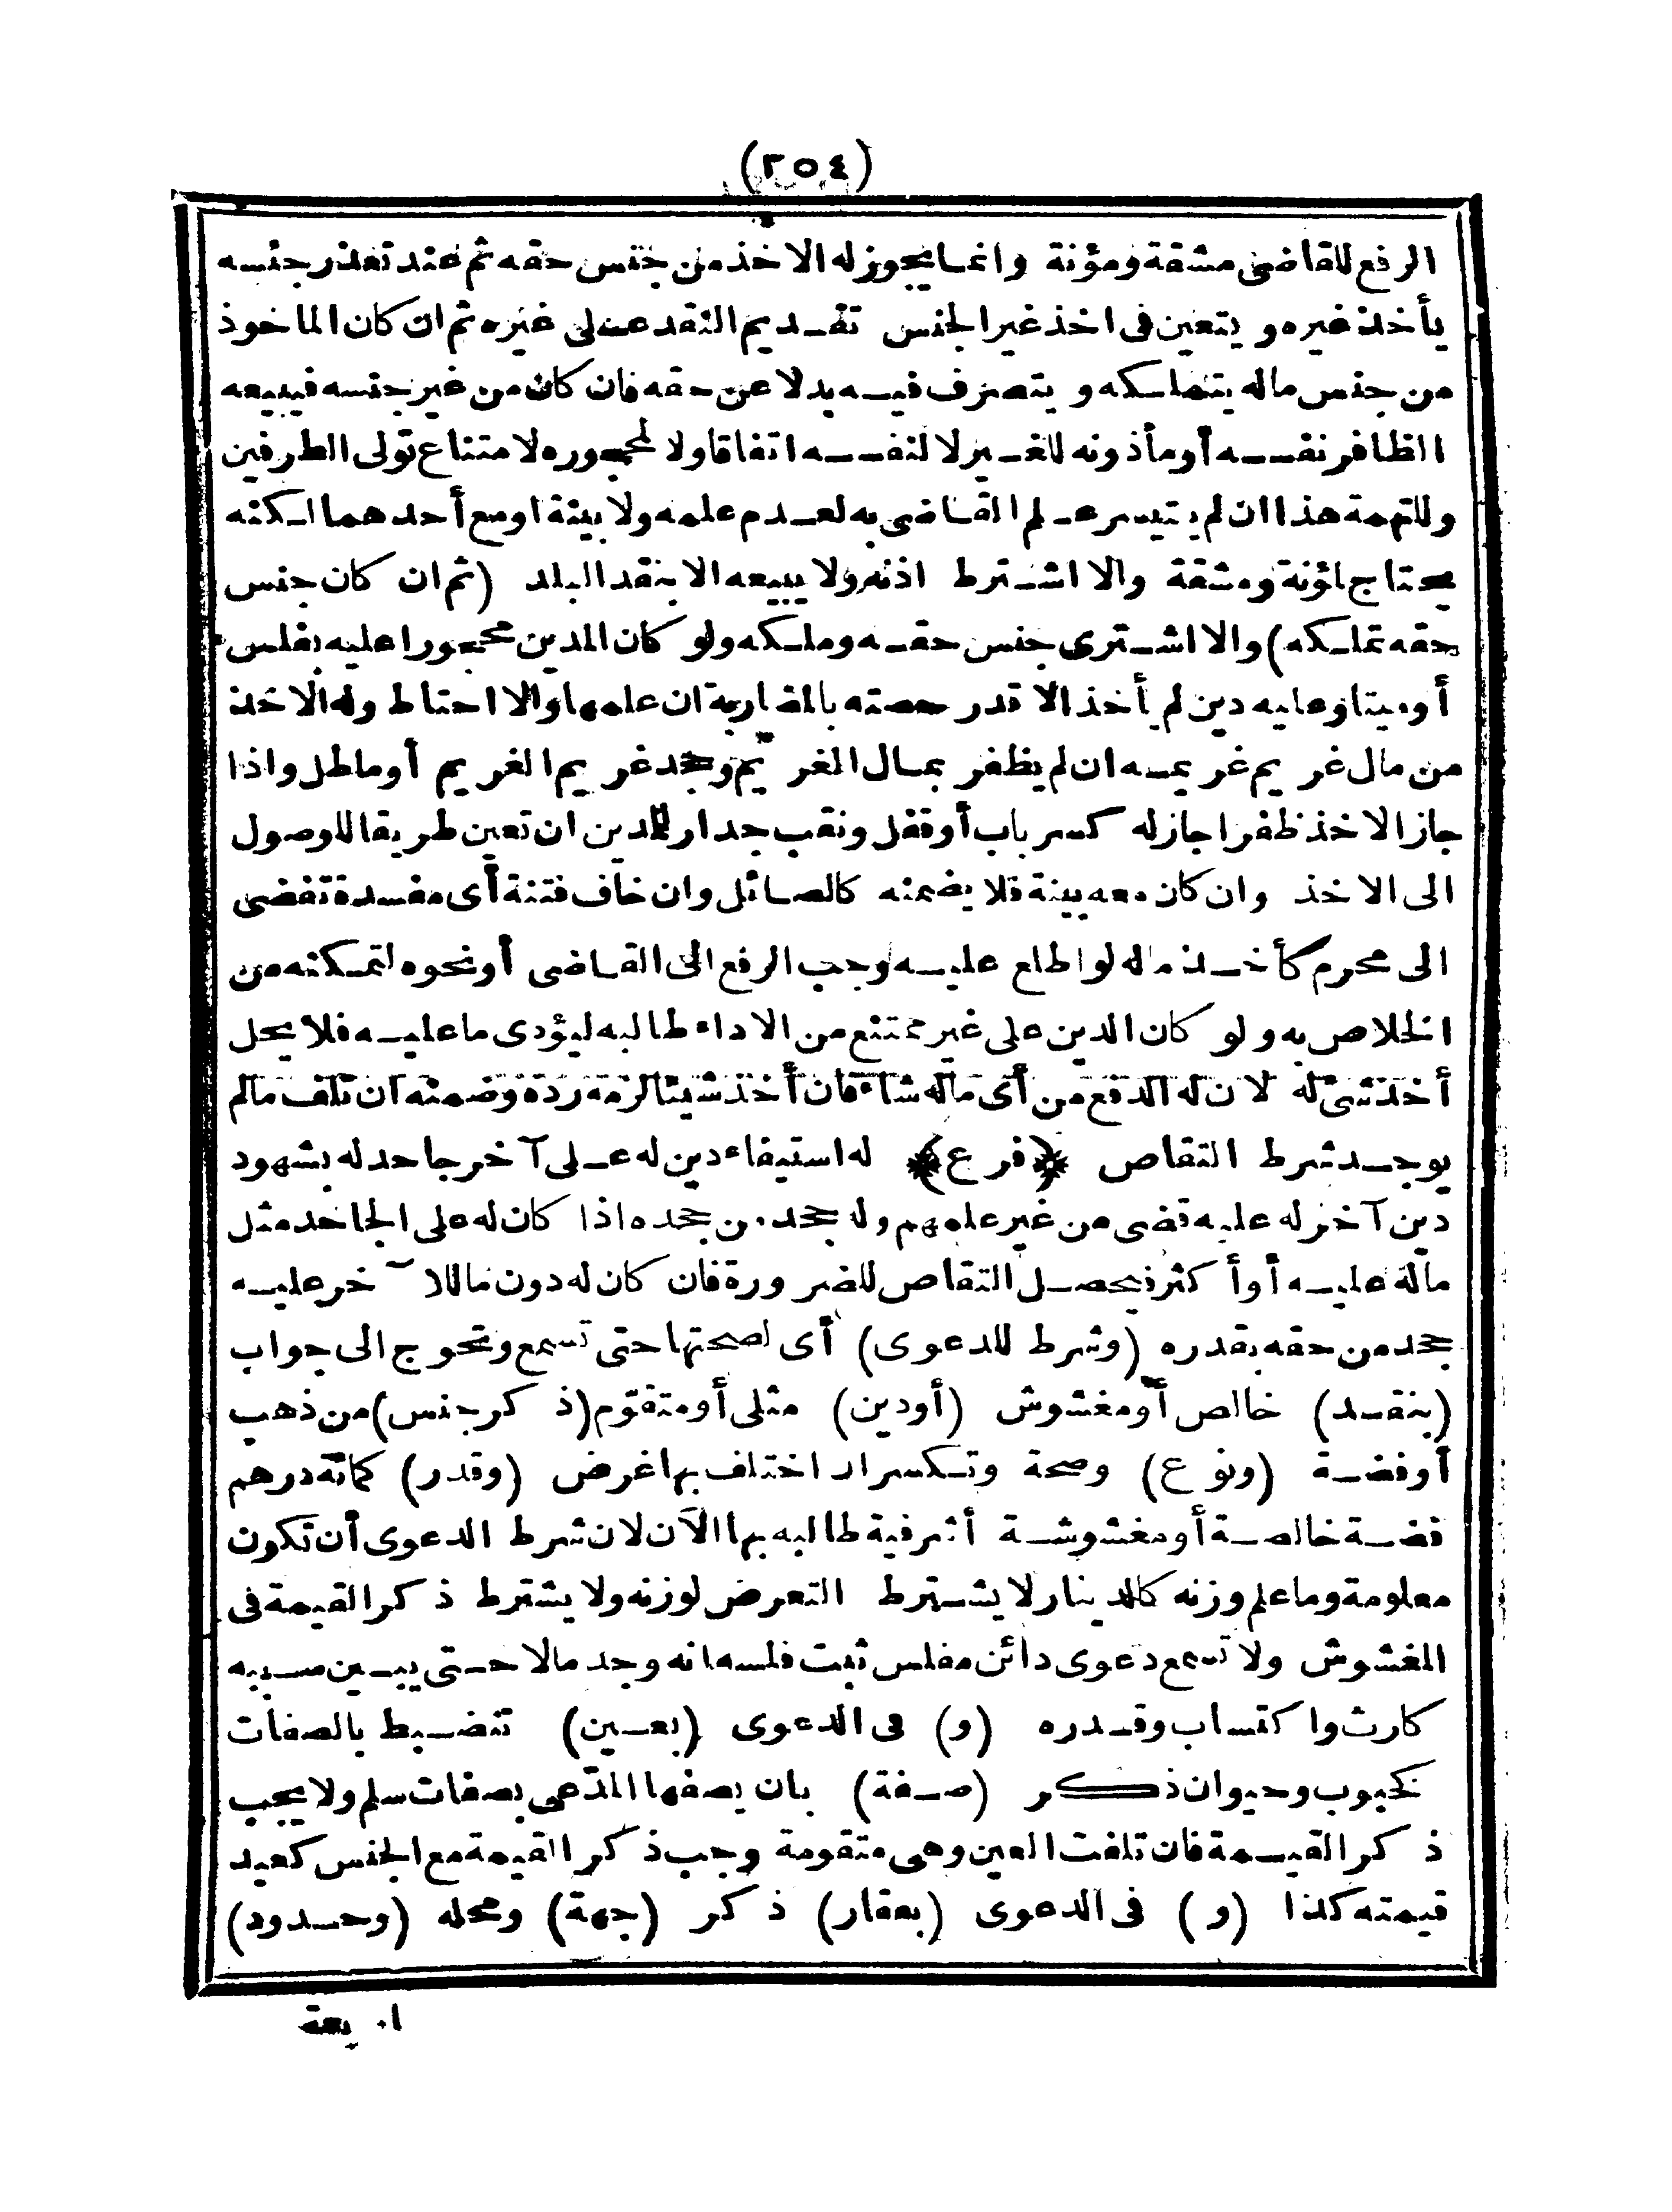 (٢٥٤)
الرفع للقاضى مشقة ومؤنة وانما يجوز له الاخذ من جنس حقه ثم عند تعذر جنسه
يأخذ غيره ويتعين فى اخذ غير الجنس تقديم النقد على غيره ثم ان كان الماخوذ
من جنس ماله يتملكه ويتصرف فيه بدلا عن حقه فان كان من غير جنسه فيبيعه
الظافر نفسه أو مأذونه للغير لا لنفسه اتفاقا ولا لمحجوره لامتناع تولى الطرفين
وللتهمة هذا ان لم يتيسر علم القاضى به لعدم علمه ولا بينة او مع أحدهما لكنه
يحتاج لمؤنة ومشقة والا اشترط اذنه ولا يبيعه الا بنقد البلد (ثم ان كان جنس
حقه تملكه) والا اشترى جنس حقه وملكه ولو كان المدين محجورا عليه بفلس
أو ميتا وعليه دين لم يأخذ الا قدر حصته بالمضاربة ان علمها والا احتاط وله الاخذ
من مال غريم غريمه ان لم يظفر بمال الغريم وجحد غريم الغريم أو ماطل واذا
جاز الاخذ ظفرا جاز له كسر باب أو قفل ونقب جدار للمدين ان تعين طريقا للوصول
الى الاخذ وان كان معه بينة فلا يضمنه كالصائل وان خاف فتنة أى مفسدة تفضى
الى محرم كأخذ ماله لو اطلع عليه وجب الرفع الى القاضى أو نحوه لتمكنه من
الخلاص به ولو كان الدين على غير ممتنع من الاداء طالبه ليؤدى ما عليه فلا يحل
أخذ شئ له لان له الدفع من أى ماله شاء فان أخذ شيئا لزمه رده وضمنه ان تلف مالم
يوجد شرط التقاص ﴿فرع﴾ له استيفاء دين له على آخر جاحد له بشهود
دين آخر له عليه قضى من غير علمهم وله جحد من جحده اذا كان له على الجاحد مثل
ماله عليه أو أكثر فيحصل التقاص للضرورة فان كان له دون ما للآخر عليه
جحد من حقه بقدره (وشرط للدعوى) أى لصحتها حتى تسمع وتحوج الى جواب
(بنقد) خالص أو مغشوش (أو دين) مثلى أو متقوم (ذكر جنس) من ذهب
أو فضة (ونوع) وصحة وتكسر ان اختلف بها غرض (وقدر) كمائة درهم
فضة خالصة أو مغشوشة أشرفية طالبه بها الآن لان شرط الدعوى أن تكون
معلومة وما علم وزنه كالدينار لا يشترط التعرض لوزنه ولا يشترط ذكر القيمة فى
المغشوش ولا تسمع دعوى دائن مفلس ثبت فلسه انه وجد مالا حتى يبين سببه
كارث واكتساب وقدره (و) فى الدعوى (بعين) تنضبط بالصفات
كحبوب وحيوان ذكر (صفة) بان يصفها المدّعى بصفات سلم ولا يجب
ذكر القيمة فان تلفت العين وهى متقومة وجب ذكر القيمة مع الجنس كعبد
قيمته كذا (و) فى الدعوى (بعقار) ذكر (جهة) ومحله (وحدود)